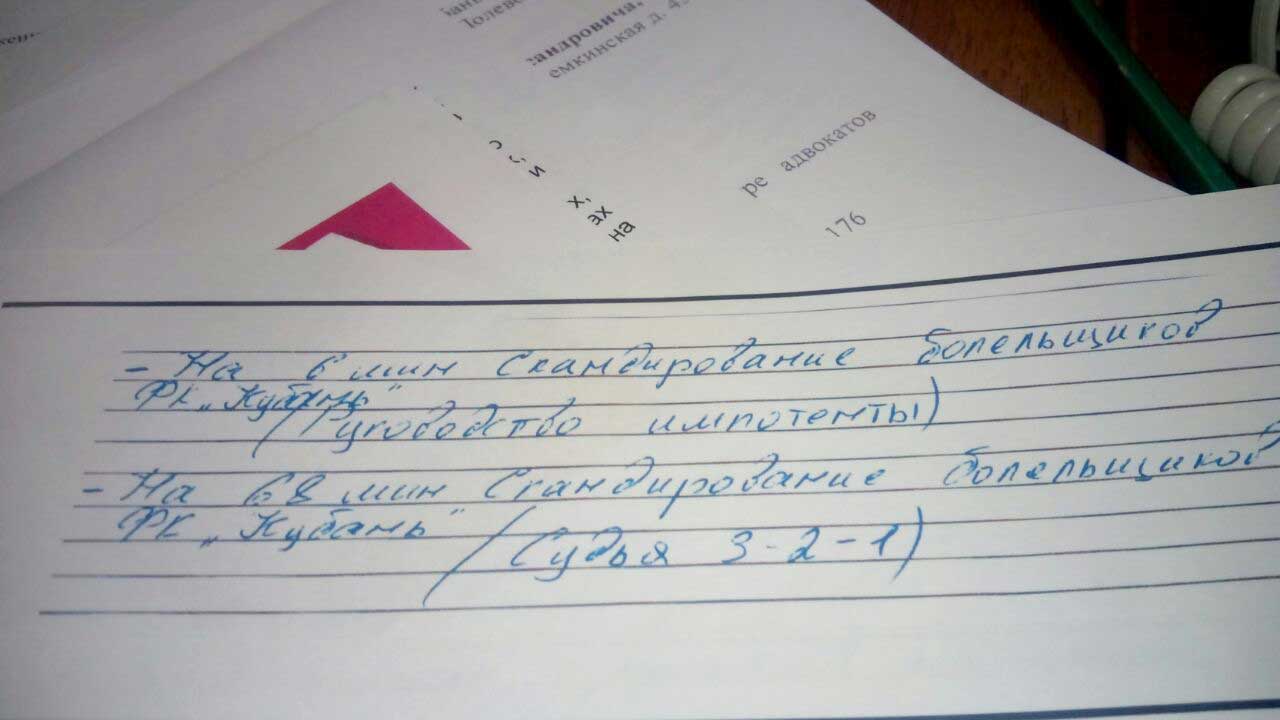 андровича,
емкинская д. 4
ре адвокатов
176
х,
ах
на
- На 6 мин Скандирование болельщиков
ФК „Кубань"
(Руководство импотенты)
- На 68 мин Скандирование болельщиков
ФК „Кубань"
(Судья 3-2-1)